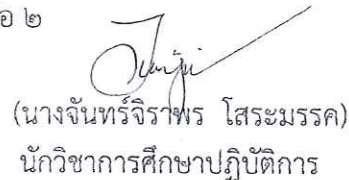 อ ๒
(นางจันทร์จิราพร โสระมรรค)
นักวิชาการศึกษาปฏิบัติการ